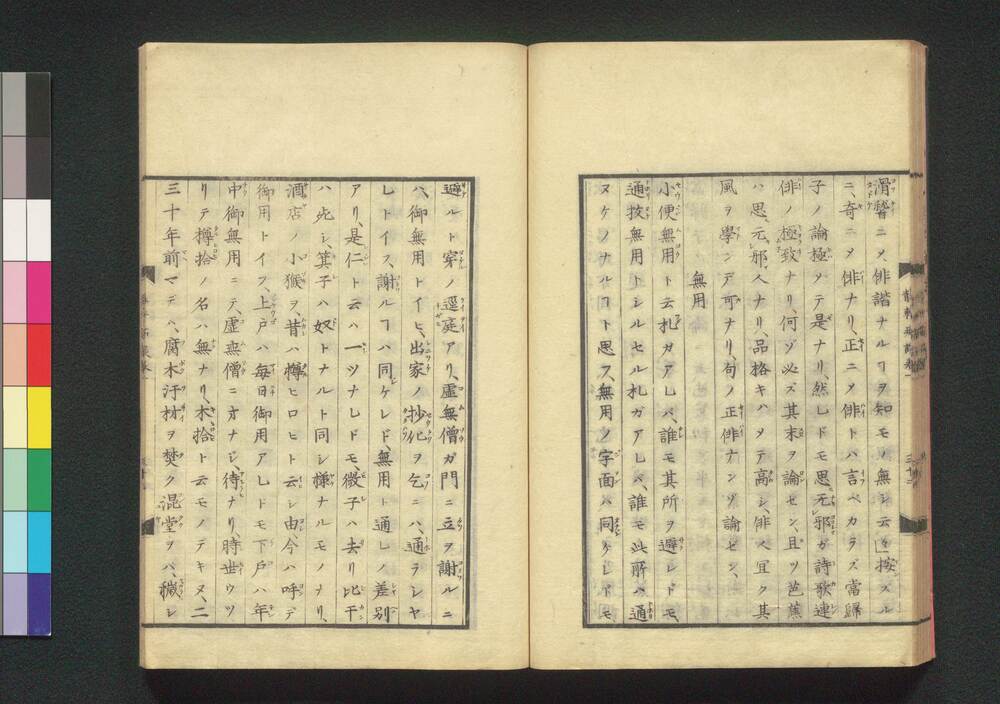 滑稽ニメ俳諧ナルヿヲ知モノ無シ云々按スル
ニ、奇ニメ俳ナリ、正ニメ俳トハ言ベカラズ當歸
子ノ論極メテ是ナリ、然レドモ思无邪ガ詩歌連
俳ノ極致ナリ、何ゾ必ズ其末ヲ論セン、且ツ芭蕉
ハ思元邪人ナリ、品格キハメテ高シ、俳人宜ク其
風ヲ學ンデ可ナリ、句ノ正俳ナンゾ論セン、
無用
小便無用ト云札ガアレバ、誰モ其所ヲ避レドモ、
通抜無用トシルセル札ガアレバ、誰モ此所ハ通
ヌケノナルヿト思フ、無用ノ字面ハ同ケレドモ、
避ルト穿ノ逕庭アリ、虚無僧ガ門ニ立ヲ謝ルニ
ハ、御無用トイヒ、出家ノ抄化ヲ乞ニハ、通ラシヤ
レトイフ、謝ルヿハ同ケレド、無用ト通レノ差別
アリ、是仁ト云ハ一ツナレドモ、微子ハ去リ比干
ハ死シ、箕子ハ奴トナルト同シ様ナルモノナリ、
酒店ノ小猴ヲ、昔ハ樽ヒロヒト云シ由、今ハ呼デ
御用トイフ、上戸ハ毎日御用アレトモ下戸ハ年
中御無用ニテ、虚無僧ニオナジ待ナリ、時世ウツ
リテ樽拾ノ名ハ無ナリ、木拾ト云モノデキヌ、二
三十年前マデハ、腐木汙材ヲ焚ク混堂ヲバ、穢レ